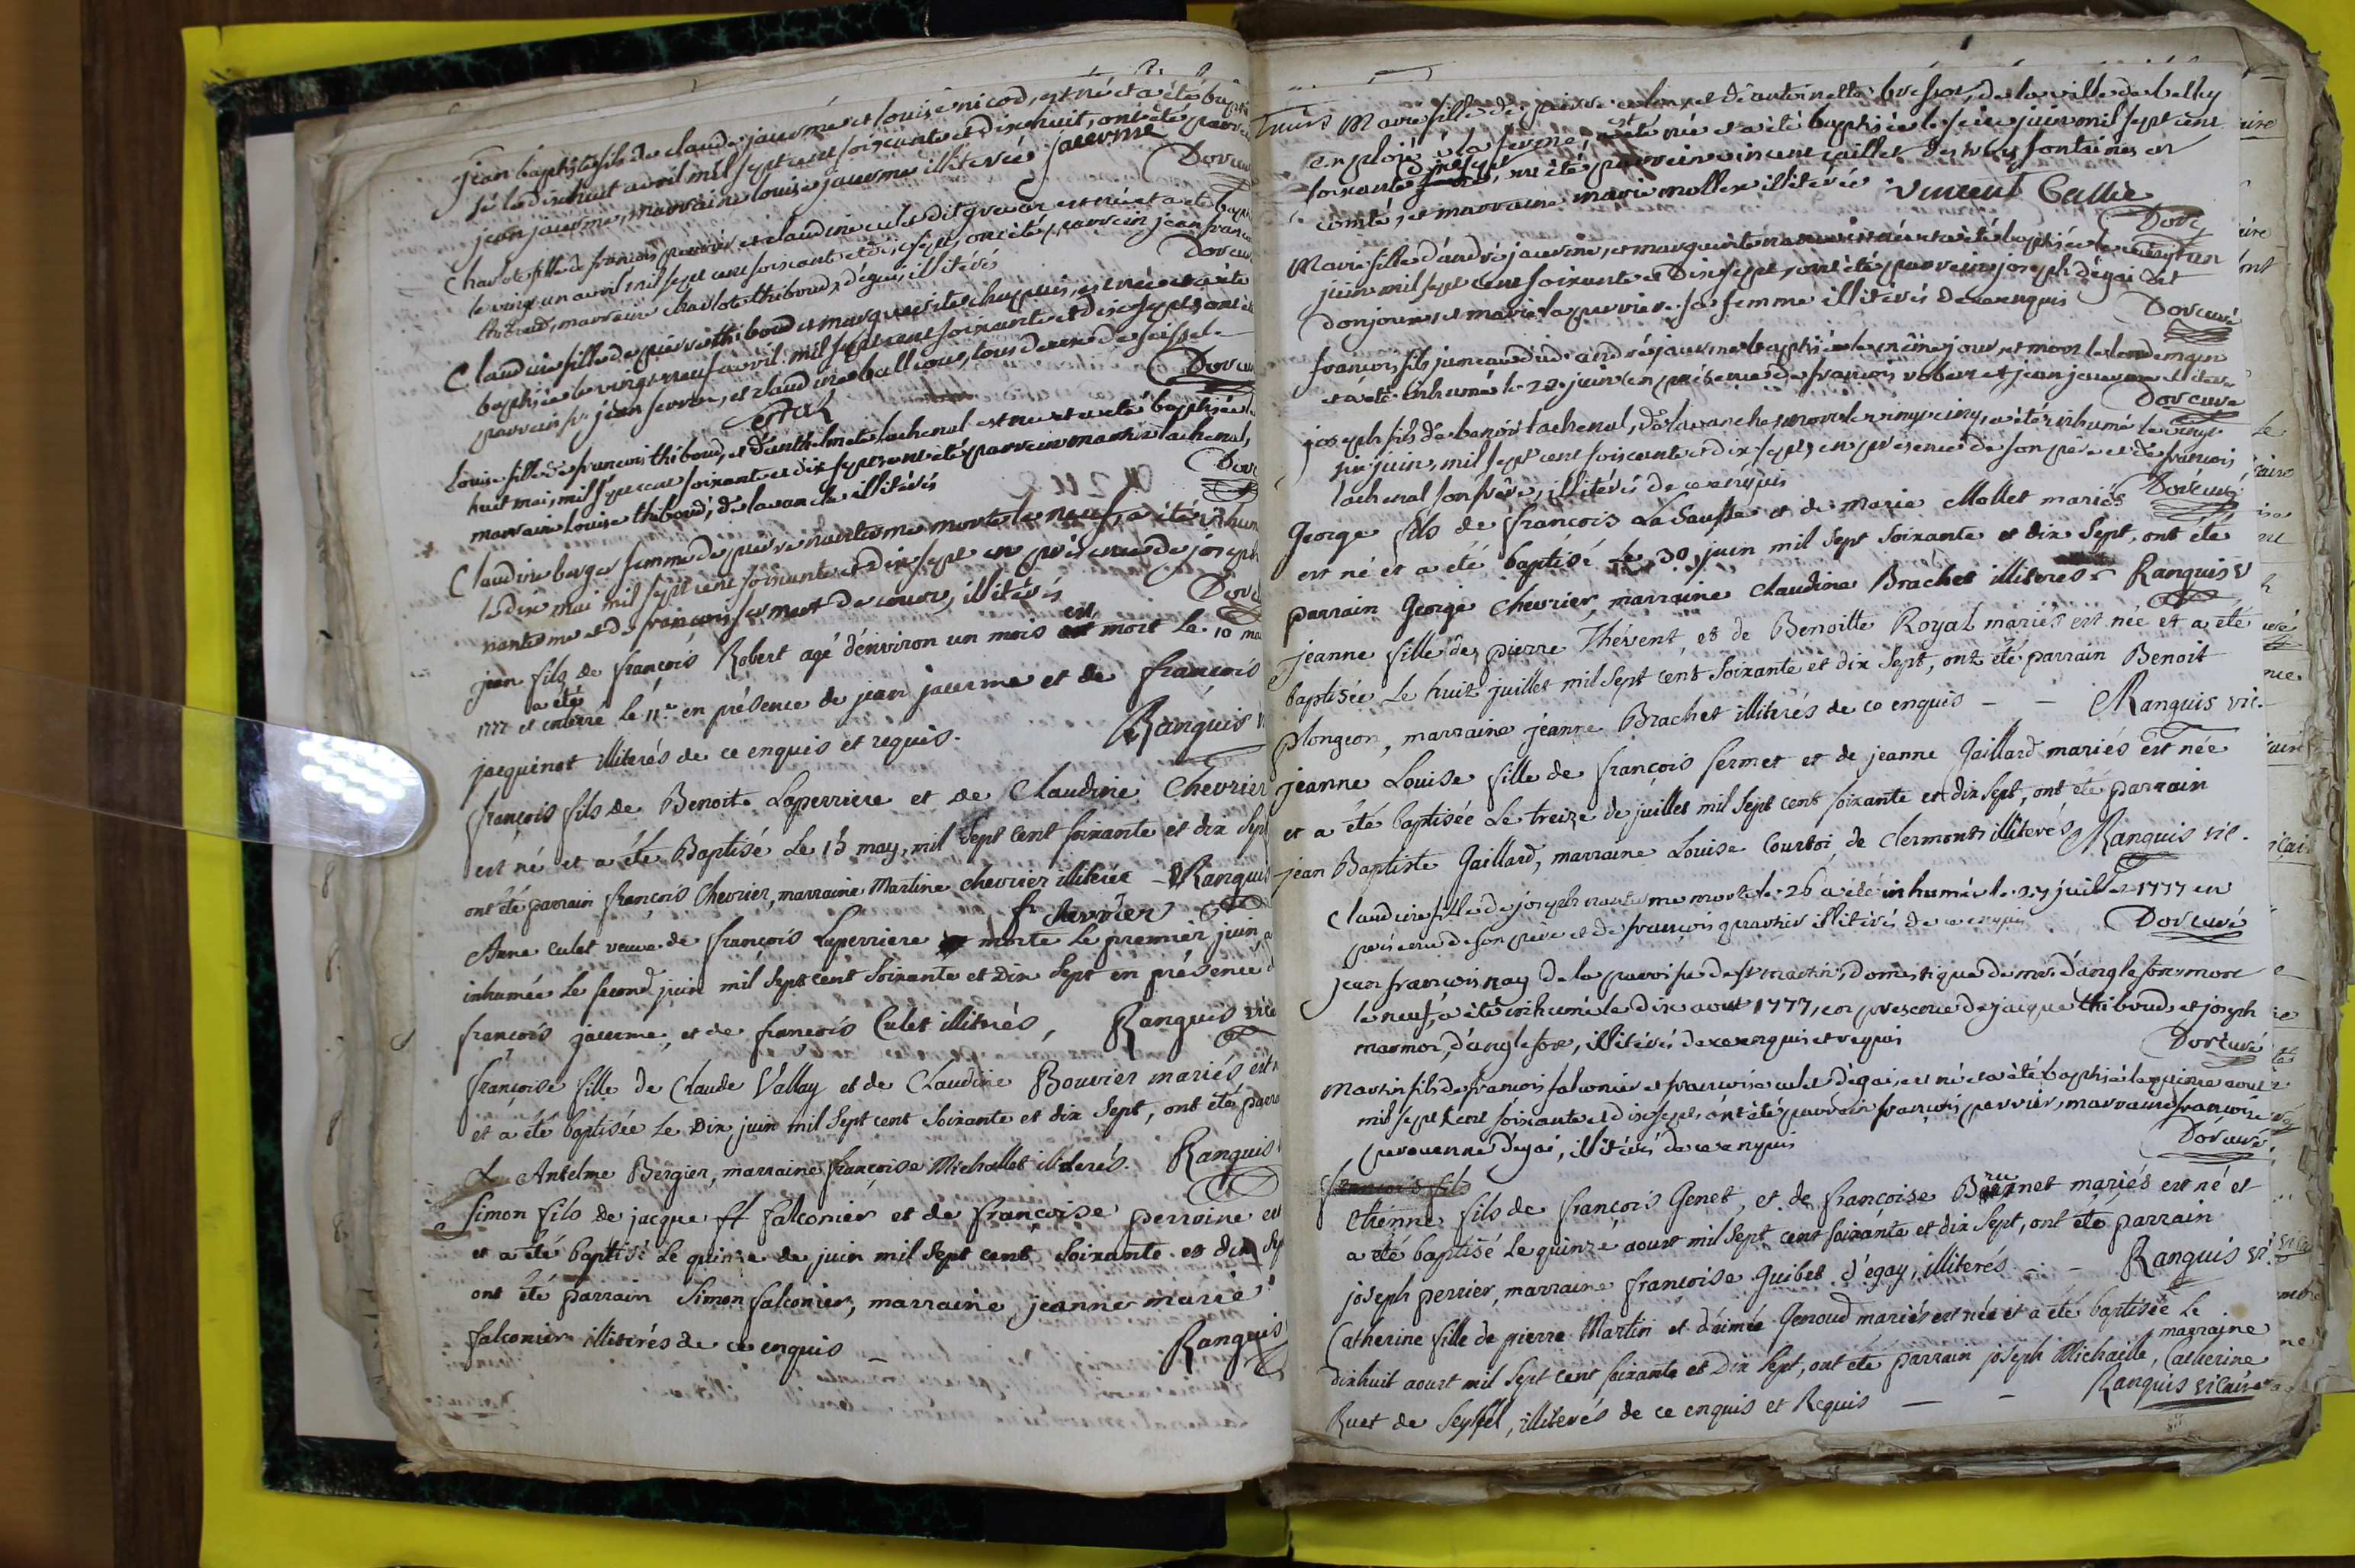 jean baptiste fils de claude jacerme et louise nicod, est né et a été bapti
sé le dixhuit avril mil sept cent soixante et dixhuit, ont été parrein
jean jacerme, marraine louise jacerme illiterée jacerme
Dorcuré
Charlote fille de françois perrier et claudine culet dit gravar est née et a été bapti
le vingt un avril mil sept cent soixante et dix sept, ont été parrein jean franc
thiboud, marraine charlote thiboud, d'égai, illiterés
Dorcuré
Claudine fille de pierre thiboud et marguerite chapuis, est née et a été
baptisée le vingt neuf avril mil sept cent soixante et dix sept, ont été
parrein sr jean serran, et claudine ballione, tous deux de seissel
Dorcuré
Louise fille de françois thiboud, et d'anthelmete lachenal est née et a été baptisée le
huit mai, mil sept cent soixante et dix sept, ont été parrein martin lachenal,
marraine louise thiboud, de lavanche illiterés
Dor
Claudine berger femme de pierre nanterme morte le neuf, a été inhum
le dix mai mil sept cent soixante et dix sept en présence de joseph
nanterme et de françois sermet de couron, illiterés
Dorc
jean fils de françois Robert agé d'environ un mois est mort le 10 ma
a été
1777 et enterré le 11e en présence de jean jacerme et de françois
jacquinot illiterés de ce enquis et requis. Ranguis
françois fils de Benoit Laperriere et de Claudine Chevrier
est né et a été Baptisé Le 13 may, mil sept cent soixante et dix sept
ont été parrain françois Chevrier, marraine Martine chevrier illiterée - Ranguis
fr chevrier
Anne culet veuve de françois Laperriere morte le premier juin a
inhumée Le second juin mil sept cent soixante et dix sept en présence d
françois jacerme, et de françois Culet illiterés, Ranguis vic
françoise fille de Claude Vallay et de Claudine Bouvier mariés, est n
et a été baptisée Le Dix juin mil sept cent soixante et dix sept, ont été parra
Antelme Bergier, marraine françoise Michallet illiterés. Ranguis
Simon fils de jacque falconier et de françoise perroine est
et a été baptisé Le quinze de juin mil sept cent soixante et dix sep
ont été parrain Simon falconier, marraine jeanne marie
falconier illiterés de ce enquis - Ranguis
Marie fille de pierre et d'antoinette bresson, de la ville de belley
emploié à la ferme, est née et a été baptisée le seize juin mil sept cent
soixante dixsept, ont été parrein vincent caillet des trois fontaines en
comté, et marraine marie mollex illiterée Vincent Callie
Dorc
Marie fille d'andré jacerme, et marguerite est née et a été baptisée le vingt un
juin mil sept cent soixante et Dix sept, ont été parrein joseph d'égai dit
Donjoux, et marie laperriere sa femme illiterés de ce enquis
Dorcuré
françois fils jumeau dudt andré jacerme baptisé le même jour, et mort le lendemain
et a été inhumé le 22 juin en présence de françois robert et jean jacerme illiterés
Dorcuré
joseph fils de benoit lachenal, de lavanche, mort le vingt cinq, a été inhumé le vingt
six juin, mil sept cent soixante et dix sept, en présence de son père et de françois
lachenal son frère, illiterés de ce enquis
Dorcuré
George fils de françois La Sausse et de marie Mollet mariés
est né et a été baptisé le 30 juin mil sept soixante et dix sept, ont été
parrain George Chevrier, marraine Claudine Brachet illiteres. Ranguis V
jeanne fille de pierre Thévent, et de Benoitte Royal mariés est née et a été
baptisée Le huit juillet mil sept cent soixante et dix sept, ont été parrain Benoit
plongeon, marraine jeanne Brachet illiterés de ce enquis - - Ranguis vic.
jeanne Louise fille de françois sermet et de jeanne Gaillard mariés est née
et a été baptisée Le treize de juillet mil sept cent soixante et dix sept, ont été parrain
jean Baptiste Gaillard, marraine Louise Courtoi de Clermont illiterés Ranguis vic.
Claudine fille de joseph nanterme morte le 26 a été inhumée le 27 juillet 1777 en
présence de son pere et de françois illiterés de ce enquis
Dorcuré
jean françois nay de la paroisse de st martin, domestique de mr d'anglefort mort
le neuf, a été inhumé le dix aout 1777, en presence de jacque thiboud, et joseph
marmon, d'anglefort, illiterés de ce enquis et requis
Dorcuré
Martin fils de francois falconier et francoise culet d'égai, est né et a été baptisé le quinze aout
mil sept cent soixante et dix sept, ont été parrein françois perrier, marraine françoise
perouenne d'égai, illiterés de ce enquis
Dorcuré
françois fils
Etienne fils de françois Genet, et de françoise Brunet mariés est né et
a été baptisé Le quinze aoust mil sept cent soixante et dix sept, ont été parrain
joseph perrier, marraine françoise Quibet d'égay, illiterés - - Ranguis vi.
Catherine fille de pierre Martin et d'aimée Genoud mariés est née et a été baptisée Le
marraine
dixhuit aoust mil sept cent soixante et Dix sept, ont été parrain joseph Michaille, Catherine
Ruet de Seyssel, illiterés de ce enquis et Requis - Ranguis vicaire